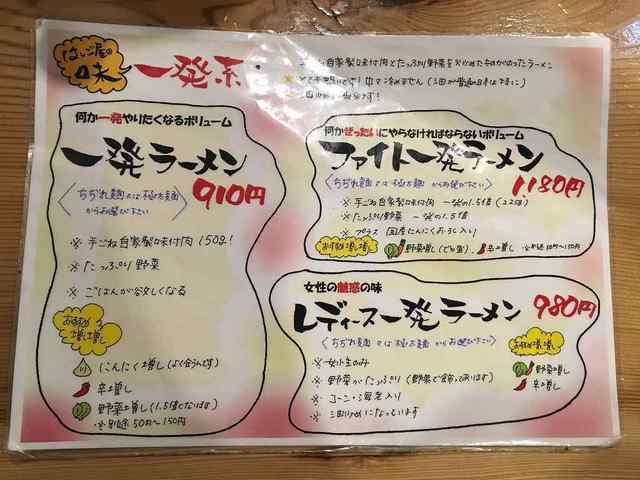 はしご屋の
味
一発系
自家製味付肉とたっぷり野菜を
ラーメン
何か一発やりたくなるボリューム
一発ラーメン
910円
〈ちぢれ麺又は極太麺
からお選び下さい〉
※ 手ごね自家製味付肉 150g!
※ たっぷり野菜
※ ごはんが欲しくなる
おすすめ
増し増し
にんにく増し(よく合うんです)
辛増し
野菜増し(1.5倍になります)
※別途 50円〜150円
何かぜったいにやらなければならないボリューム
ファイト一発ラーメン
1180円
〈ちぢれ麺又は極太麺からお選び下さい〉
※ 手ごね自家製味付肉 一発の1.5倍(225g)
※ たっぷり野菜 一発の1.5倍
※ プラス 国産にんにくおろし入り
おすすめ増し増し
野菜増し 辛増し ※別途50円〜150円
女性の魅惑の味
レディース一発ラーメン
980円
〈ちぢれ麺又は極太麺からお選び下さい〉
※ 女性のみ
※ 野菜がたっぷり(野菜で飾ってあります)
※ コーン・海老入り
※ になっています
おすすめ増し増し
野菜増し
辛増し